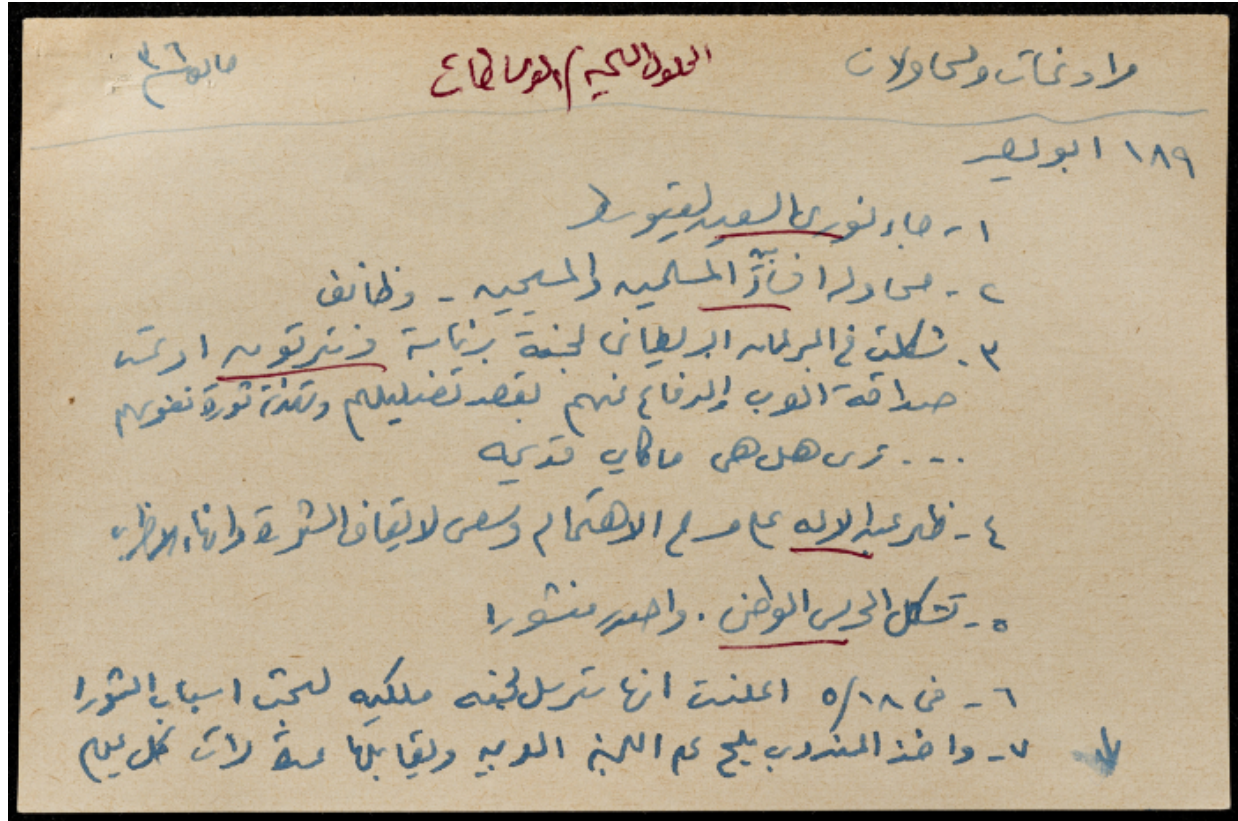 مراوغات ومحاولات الحلول السلمية / الوساطات مايو ٣٦
١٨٩ ابو نصير
١- جاء نوري السعيد ليتوسط
٢- محاولة المسلمين والمسيحيين - وظائف
٣- شكلت في البرلمان البريطاني لجنة برئاسة ونترتون ادعت
صداقة العرب والدفاع عنهم بقصد تضليلهم وتهدئة ثورة نفوسهم
... ترى هل هي ماكان قديمه
٤- ظهر عبد الاله على مسرح الاهتمام وسعى لايقاف الثورة وانهاء الاضراب
٥- تشكل الحرس الوطني. واصدر منشورا
٦- في ٥/١٨ اعلنت انها سترسل لجنه ملكيه لبحث اسباب الثورا
٧- واخذ المندوب يلح على اللجنة العربيه ويقابلها عدة مرات كل يوم